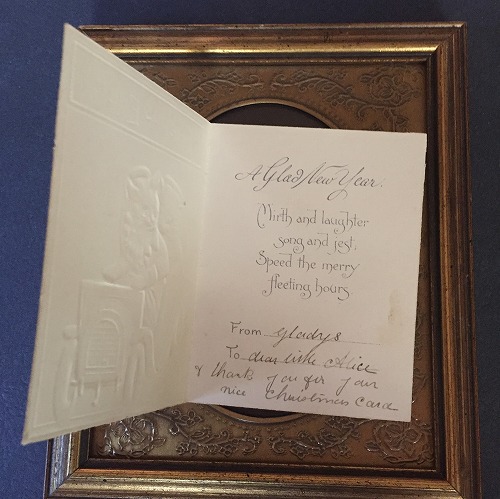 A Glad New Year.
Mirth and laughter
song and jest,
Speed the merry
fleeting hours
From Gladys
To dear little Alice
& thank you for your
nice Christmas Card